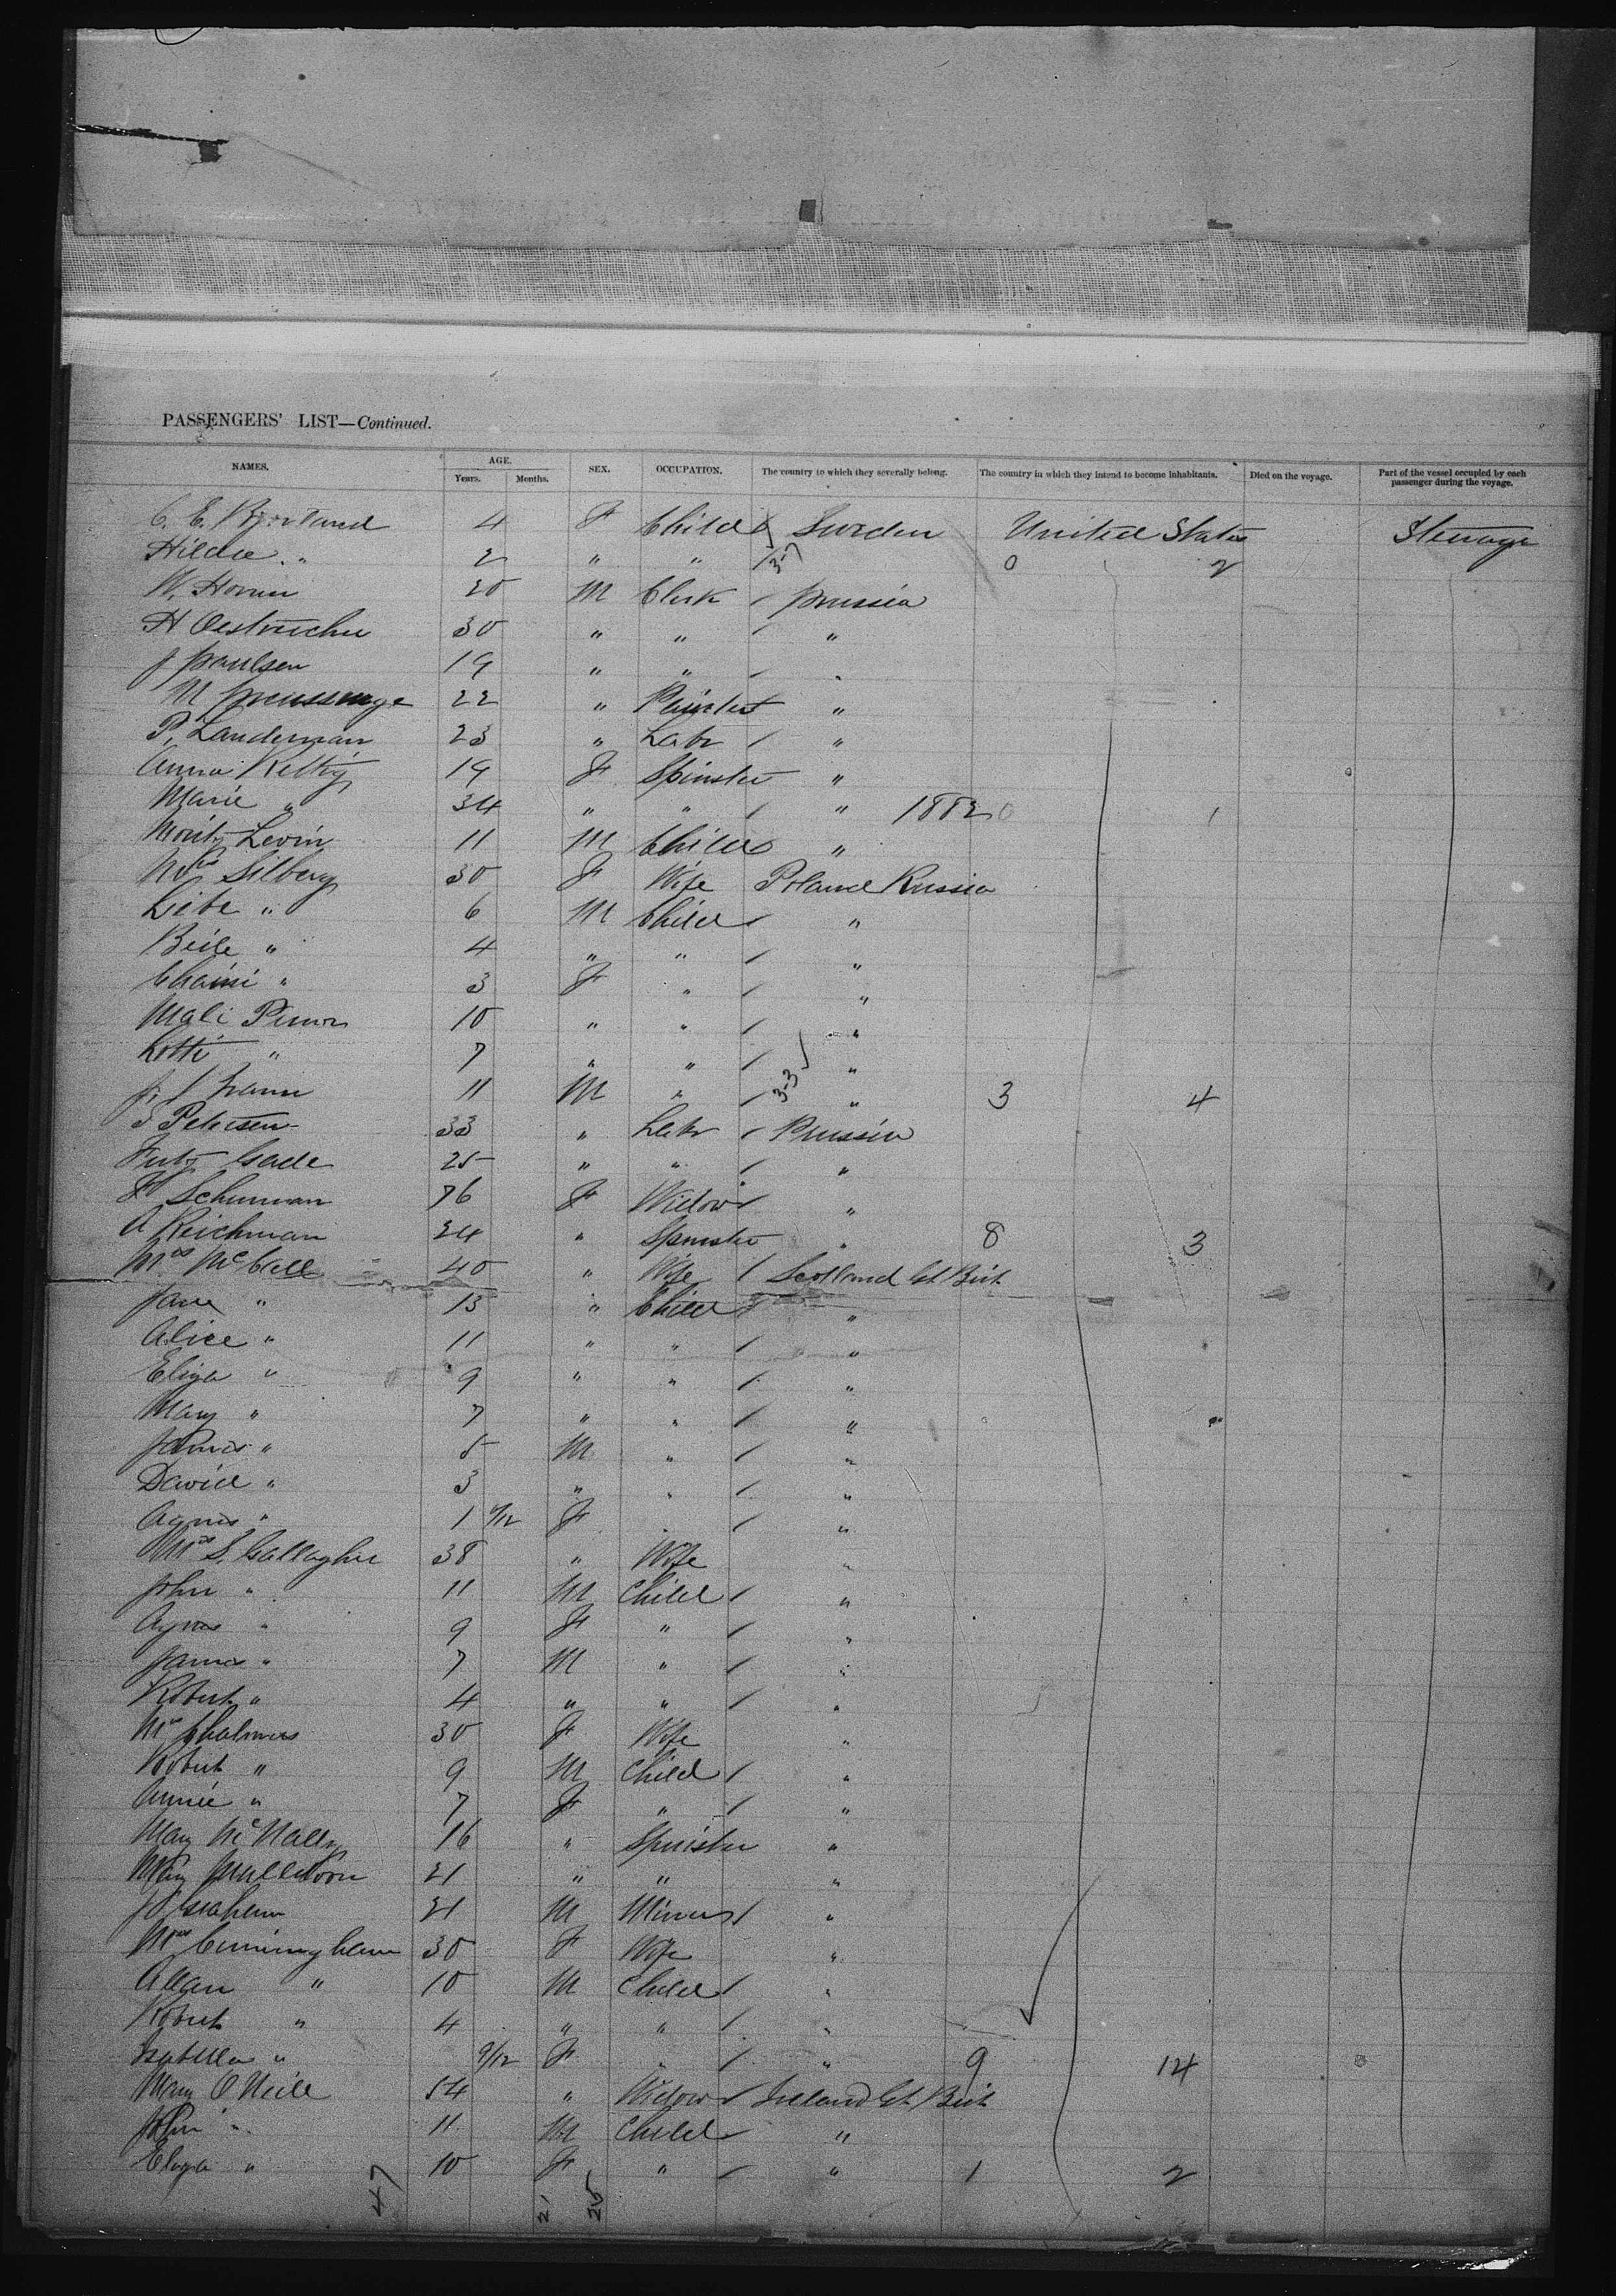 PASSENGERS' LIST—Continued.
NAMES. AGE. SEX. OCCUPATION. The country to which they severally belong. The country in which they intend to become inhabitants. Died on the voyage. Part of the vessel occupied by each passenger during the voyage.
Years. Months.
C. E. 4 F Child Sweden United States Steerage
Hilda " 2 " " 3-7 0 2
W. 20 M Clerk Prussia
H Oestreicher 30 " " "
J Paulsen 19 " " "
M 22 " "
P. Landerman 23 " Labr "
Anna 19 F Spinster "
Marie " 34 " " " 1882 0 1
Moritz Levin 11 M Child "
Mrs Silberg 30 F Wife Poland Russia
Liebe " 6 M Child "
Beile " 4 " " "
" 3 F " "
Mali 10 " " "
Lotti " 7 " " "
11 M " 3-3 " 3 4
S Petersen 33 " Labr Prussia
Fritz Gade 25 " " "
Schuman 76 F Widow "
A Reichman 24 " Spinster " 8 3
Mrs McCall 40 " Wife Scotland Gt Brit
Jane " 13 " Child "
Alice " 11 " " "
Eliza " 9 " " "
Mary " 7 " " "
James " 5 M " "
David " 3 " " "
Agnes " 1 F " "
Mrs S. Gallagher 38 " Wife "
John " 11 M Child "
Agnes " 9 F " "
James " 7 M " "
Robert " 4 " " "
Mrs Chalmers 30 F Wife "
Robert " 9 M Child "
Annie " 7 F " "
Mary McNally 16 " Spinster "
Mary 21 " " "
J Graham 21 M Miner "
Mrs Cunningham 30 F Wife "
Allan " 10 M Child "
Robert " 4 " " "
Isabella " 9/12 F " " 9 14
Mary O'Neill 54 " Widow Ireland Gt Brit
John " 11 M Child "
Eliza " 10 F " " 1 2
47 21 26